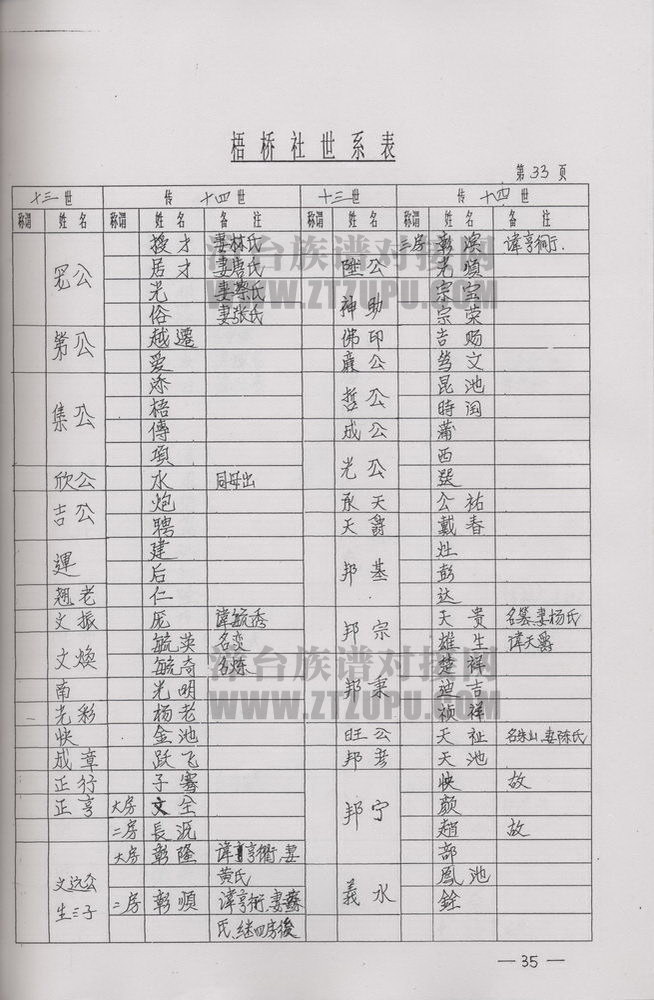 梧桥社世系表
第33页
十三世 传 十四世 十三世 传 十四世
称谓 姓名 称谓 姓名 备注 称谓 姓名 称谓 姓名 备注
公 授才 妻林氏
居才 妻唐氏
光 妻蔡氏
俗 妻张氏
第公 越遷
爱
集公 添
梧
傳
項
欣公 水 同母出
吉公 炮
聘
運 建
后
翘老 仁
文振 厐 諱毓秀
文焕 毓英 名变
毓奇 名炼
南 光明
光彩 杨老
快 金池
成章 跃飞
正行 子騫
正亨 大房 文全
二房 長沉
文远公生三子 大房 彰隆 諱亨衢,妻
黄氏
二房 彰順 諱亨衍,妻蘇
氏,继四房後
陞公 三房 彰滨 諱亨衕.
光順
神助 宗宝
宗荣
佛印 吉赐
廉公 笃文
哲公 昆池
時淘
成公 蒲
光公 西
选
承天 公祐
天爵 戴春
邦基 灶
彭
达
邦宗 天貴 名綦,妻杨氏
雄生 諱天爵
邦秉 楚祥
迪吉
祯祥
旺公 天祉 名朱山,妻陈氏
邦考 天池
邦宁 快 故
颜
趙 故
部
義水 凤池
銓
— 35 —
台族谱对接网
WWW.ZTZUPU.COM
台族谱对接网
WWW.ZTZUPU.COM